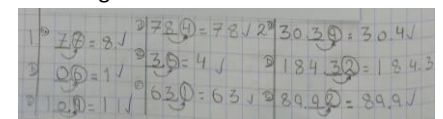 1 7.7 = 8 ✓
0.6 = 1 ✓
10.9 = 11 ✓
78.4 = 78 ✓
3.5 = 4 ✓
63.1 = 63 ✓
2 30.39 = 30.4 ✓
184.32 = 184.3
89.92 = 89.9 ✓